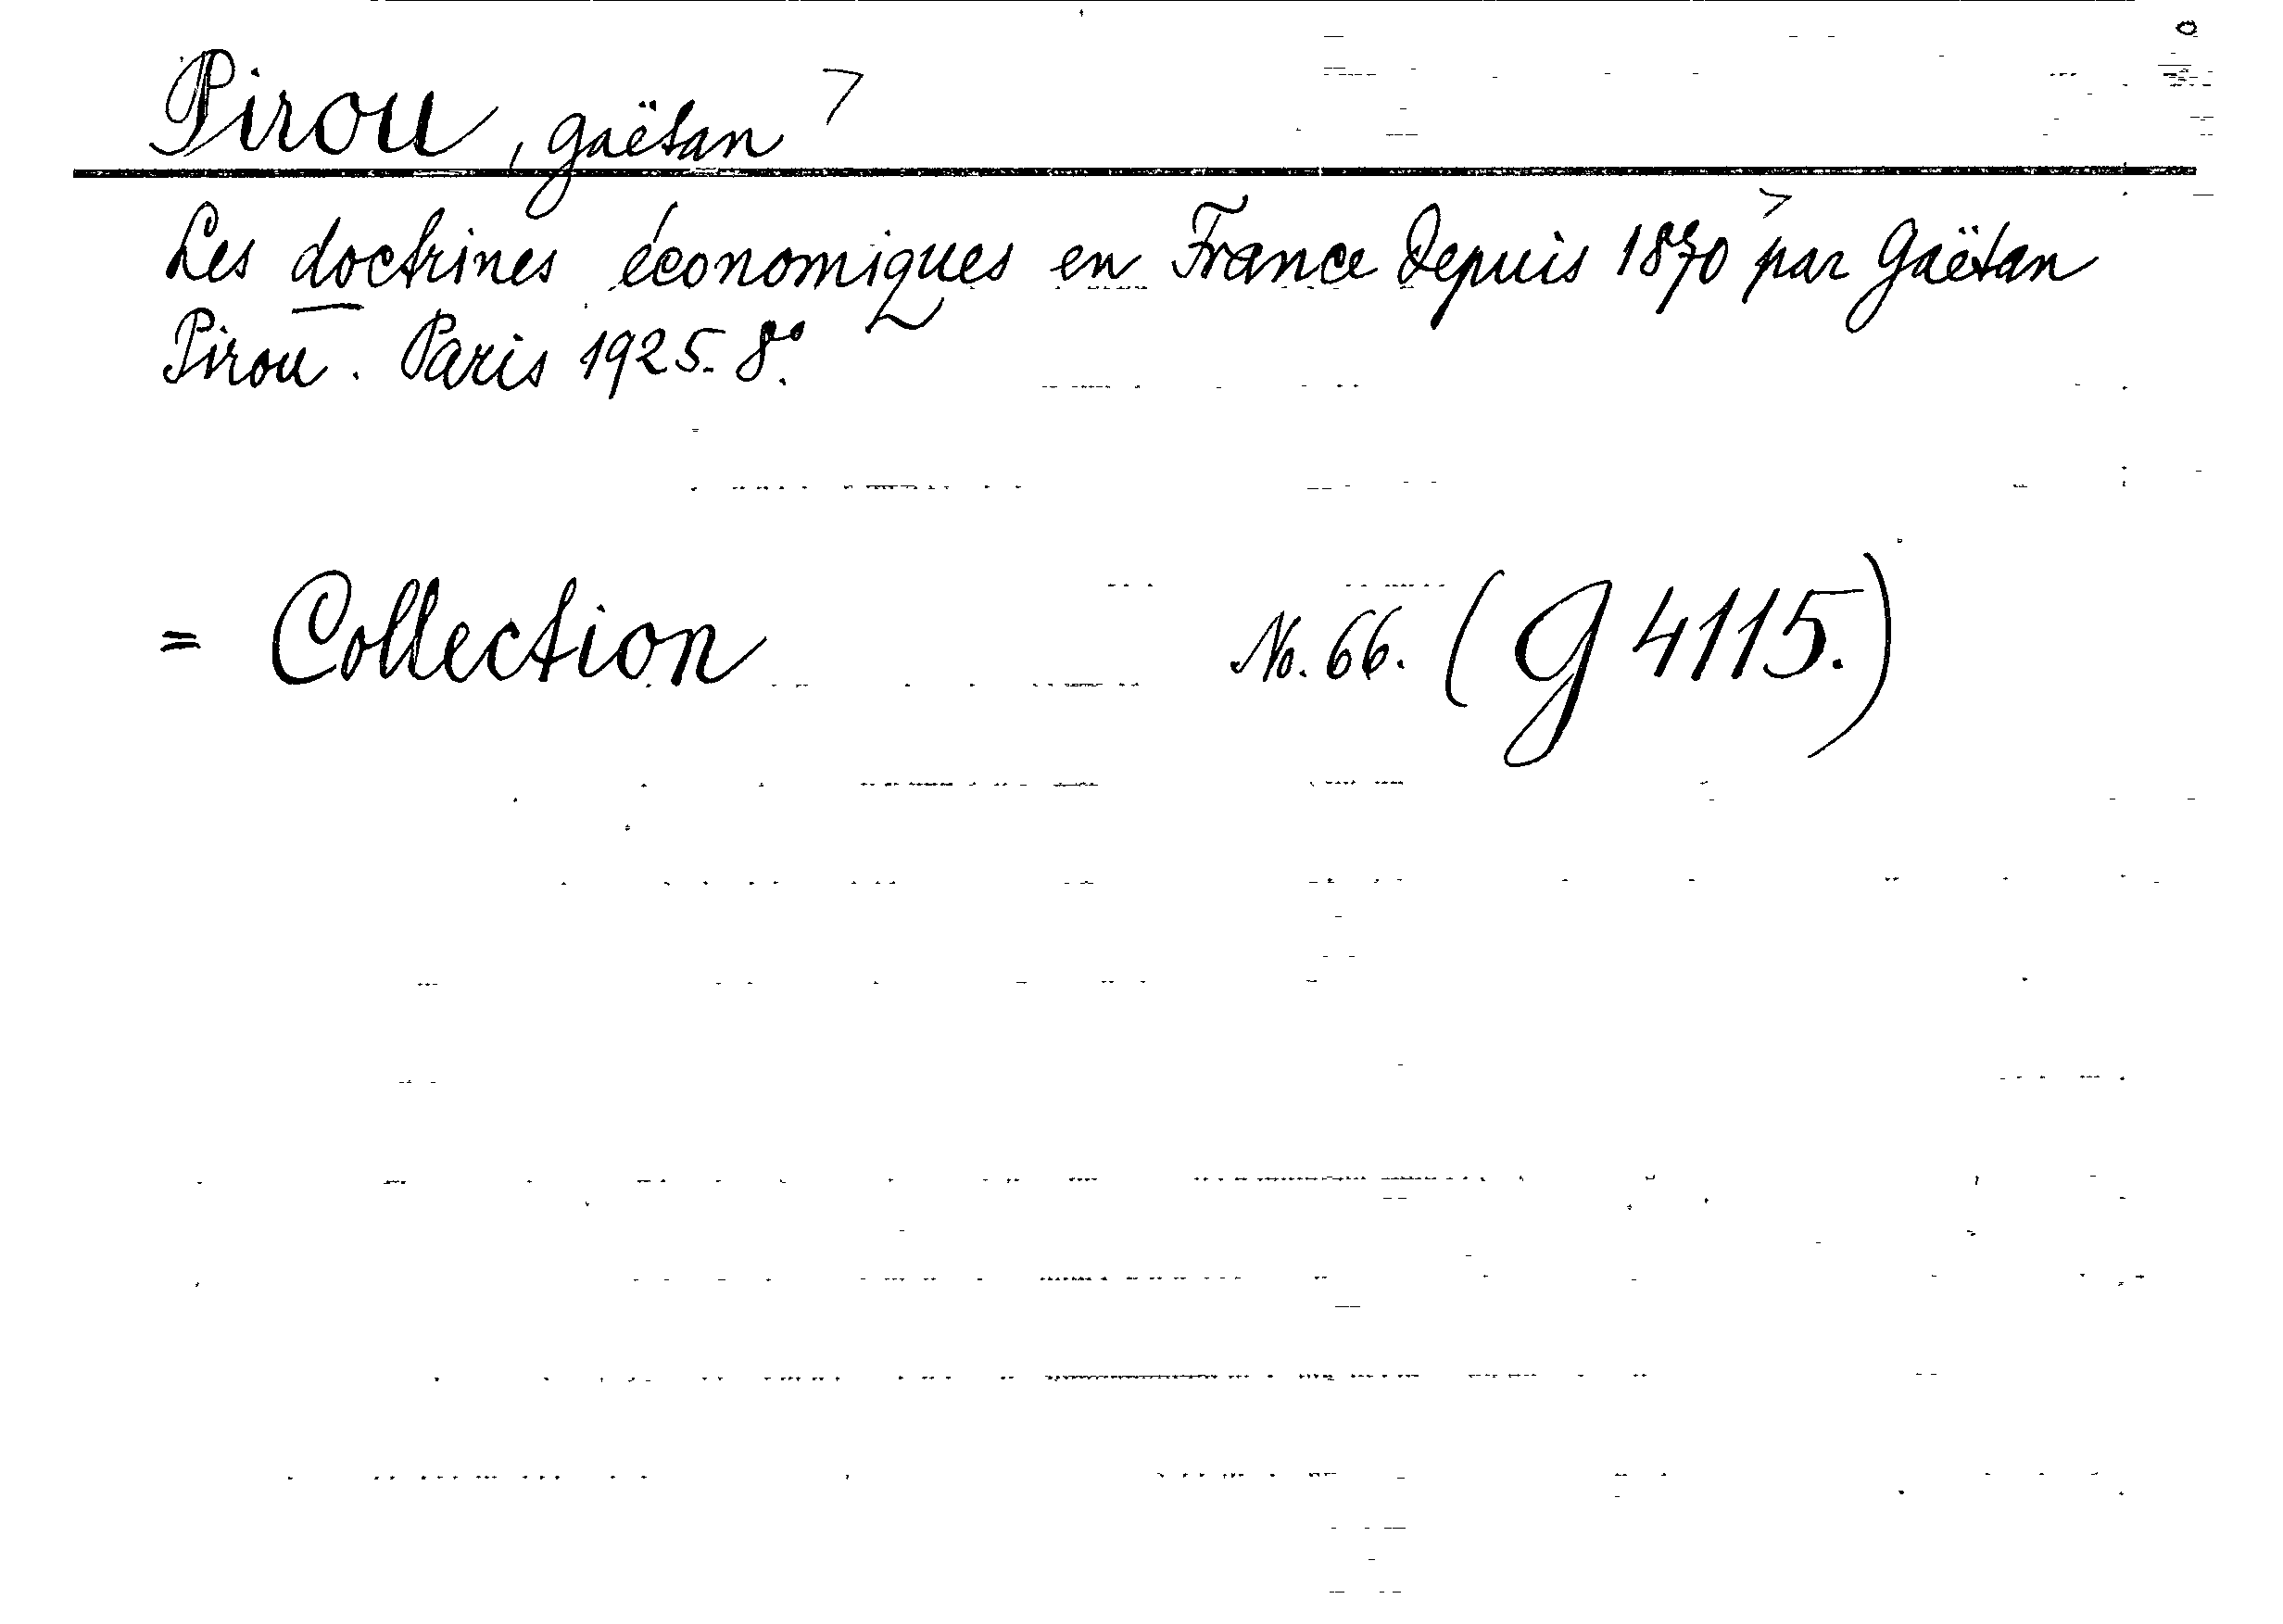 Pirou, Gaëtan
Les doctrines économiques en France depuis 1870 par Gaëtan
Pirou. Paris 1925. 8°.
= Collection No. 66. (G 4115.)